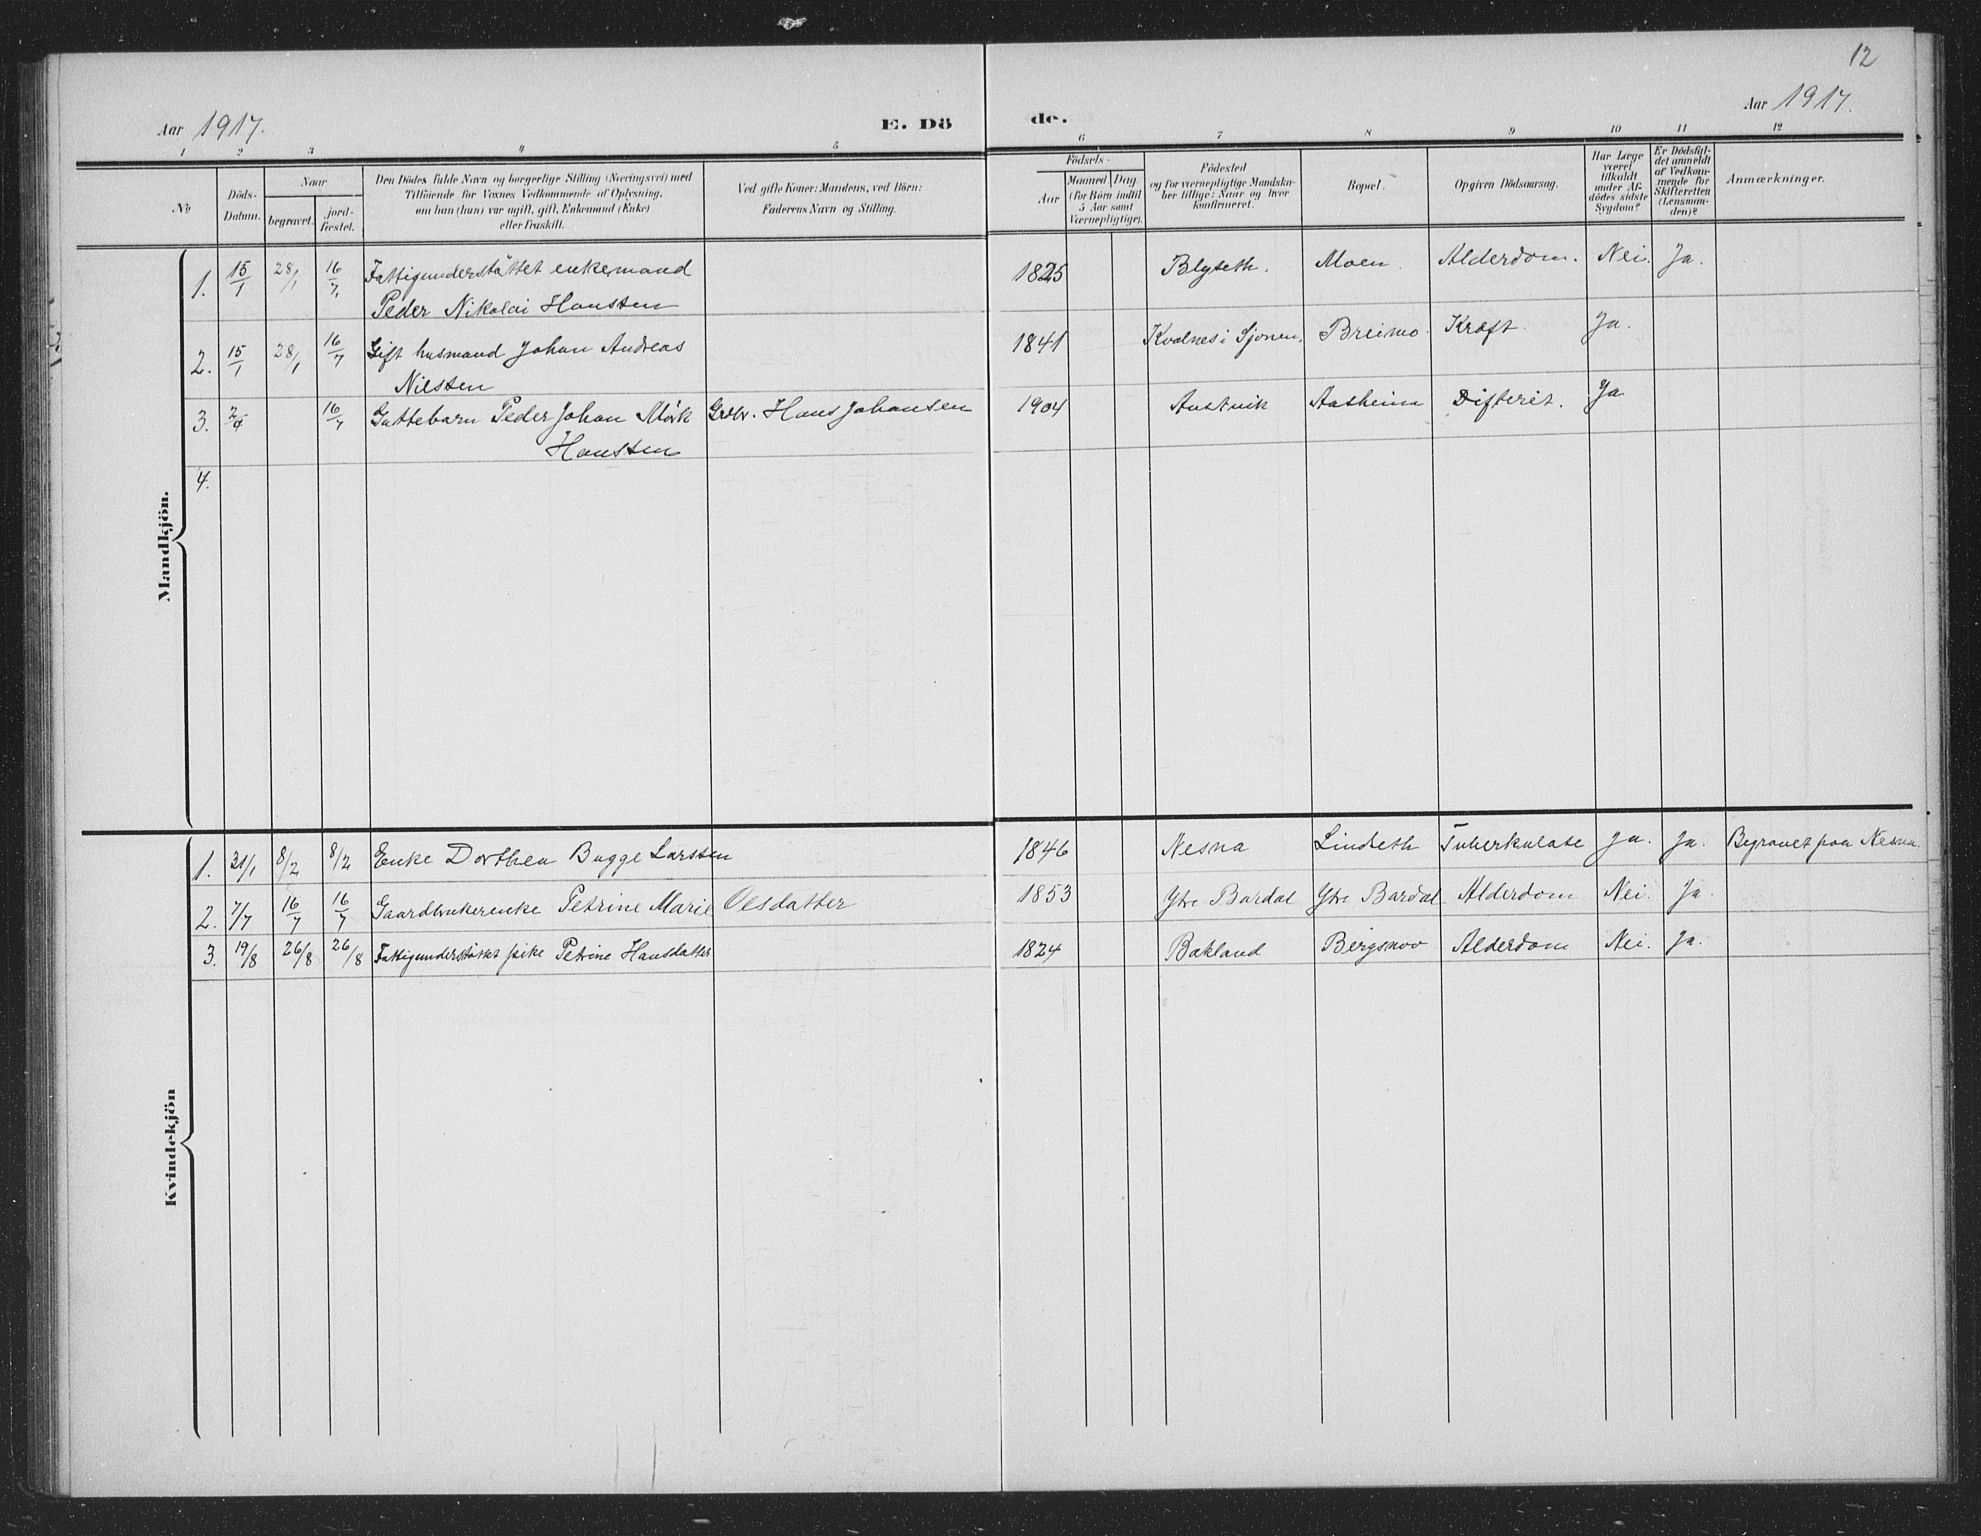 12
Aar 1917.
E. Dö
de.
Aar 1917.
1 2 3 4 5 6 7 8 9 10 11 12
No
Döds-
Datum.
Naar
begravet.
jord-
fæstet.
Den Dödes fulde Navn og borgerlige Stilling (Næringsvei) med
Tilföiende for Voxnes Vedkommende af Oplysning,
om han (hun) var ugift, gift, Enkemand (Enke)
eller fraskilt.
Ved gifte Koner: Mandens, ved Börn:
Faderens Navn og Stilling.
Födsels-
Aar
Maaned
Dag
(for Börn indtil
5 Aar samt
Værnepligtige).
Födested
og for værnepligtige Mandska-
ber tillige: Naar og hvor
konfirmeret.
Bopæl.
Opgiven Dödsaarsag.
Har Læge
været
tilkaldt
under Af-
dödes sidste
Sygdom?
Er Dödsfal-
det anmeldt
af Vedkom-
mende for
Skifteretten
(Lensman-
den)?
Anmærkninger.
Mandkjön.
1. 15/1 28/1 16/7 Fattigunderstøttet enkemand
Peder Nikolai Hanssen
1825 Blyseth. Moen. Alderdom. Nei. Ja.
2. 15/1 28/1 16/7 Gift husmand Johan Andreas
Nilssen
1841 Kvalnes i Sjonen. Breimo. Kræft. Ja.
3. 2/4 16/7 Guttebarn Peder Johan Mörk Grdbr. Hans Johansen
Hanssen
1904 Austvik Aasheim Difterit. Ja
4.
Kvindekjön
1. 31/1 8/2 8/2 Enke Dorthea Bugge Larssen 1846 Nesna Lindseth Tuberkulose Ja. Ja. Begravet paa Nesna.
2. 7/7 16/7 16/7 Gaardbrukerenke Petrine Marie Olsdatter 1853 Ytre Bardal Ytre Bardal Alderdom Nei. Ja.
3. 19/8 26/8 26/8 Fattigunderstøttet pike Petrine Hansdatter 1824 Bakland Bergsnov Alderdom Nei. Ja.